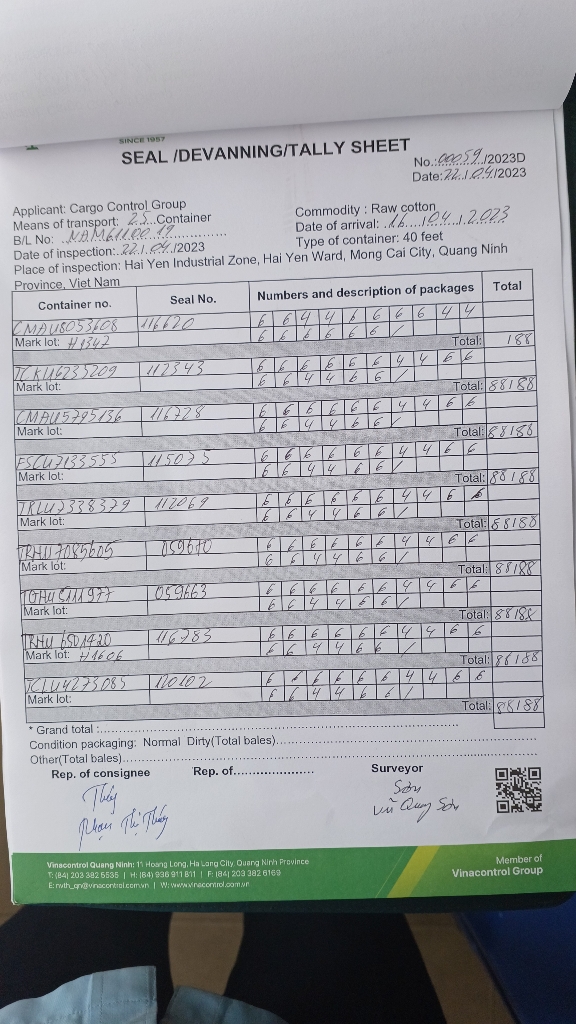 SINCE 1957
SEAL /DEVANNING/TALLY SHEET
No.:00059./2023D
Date:22./.04./2023
Applicant: Cargo Control Group
Commodity : Raw cotton
Means of transport: 25 Container
Date of arrival: 16 /04 /2023
B/L No: NAM6110019
Type of container: 40 feet
Date of inspection: 22./.04./2023
Place of inspection: Hai Yen Industrial Zone, Hai Yen Ward, Mong Cai City, Quang Ninh
Province, Viet Nam
Container no. Seal No. Numbers and description of packages Total
CMAU8053608 116620 6 6 4 4 6 6 6 6 4 4
6 6 6 6 6 6 /
Mark lot: H1342 Total: 188
TCKU6235209 112343 6 6 6 6 6 6 4 4 6 6
6 6 4 4 6 6 /
Mark lot: Total: 88188
CMAU5795136 116728 6 6 6 6 6 6 4 4 6 6
6 6 4 4 6 6 /
Mark lot: Total: 88188
FSCU7133555 115075 6 6 6 6 6 6 4 4 6 6
6 6 4 4 6 6 /
Mark lot: Total: 88188
TRLU7338379 112069 6 6 6 6 6 6 4 4 6 6
6 6 4 4 6 6 /
Mark lot: Total: 88188
TRHU7085605 059670 6 6 6 6 6 6 4 4 6 6
6 6 4 4 6 6 /
Mark lot: Total: 88188
059663 6 6 6 6 6 6 4 4 6 6
6 6 4 4 6 6 /
Mark lot: Total: 88188
TRHU 6501420 116785 6 6 6 6 6 6 4 4 6 6
6 6 4 4 6 6 /
Mark lot: H1606 Total: 88188
TCLU4275085 120202 6 6 6 6 6 6 4 4 6 6
6 6 4 4 6 6 /
Mark lot: Total: 88188
* Grand total :
Condition packaging: Normal Dirty(Total bales)
Other(Total bales)
Rep. of consignee Rep. of Surveyor
Thủy Sơn
Phạm Thị Thủy Vũ Quang Sơn
Vinacontrol Quang Ninh: 11 Hoang Long, Ha Long City, Quang Ninh Province
T: (84) 203 382 5535 | H: (84) 936 911 811 | F: (84) 203 382 6169
E: nvth_qn@vinacontrol.com.vn | W: www.vinacontrol.com.vn
Member of
Vinacontrol Group